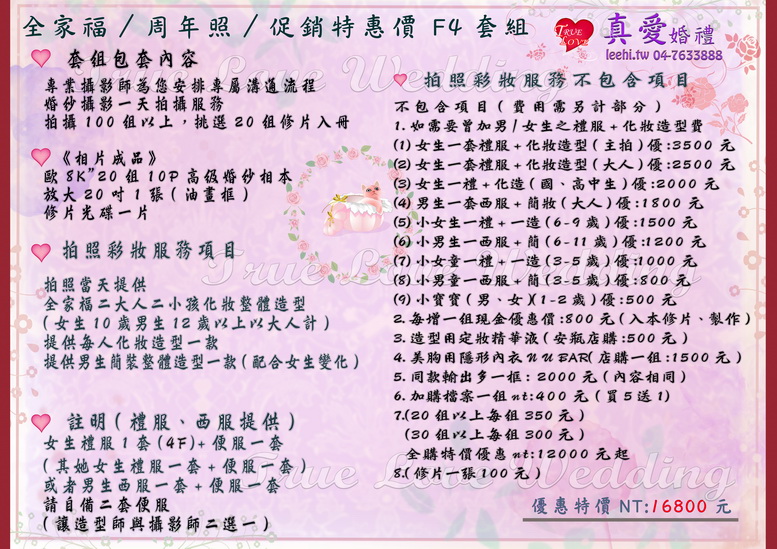 全家福/周年照/促銷特惠價 F4套組
TRUE LOVE
真愛婚禮
leehi.tw 04-7633888
套組包套內容
專業攝影師為您安排專屬溝通流程
婚紗攝影一天拍攝服務
拍攝100組以上，挑選20組修片入冊
《相片成品》
歐8K”20組10P高級婚紗相本
放大20吋1張(油畫框)
修片光碟一片
拍照彩妝服務項目
拍照當天提供
全家福二大人二小孩化妝整體造型
(女生10歲男生12歲以上以大人計)
提供每人化妝造型一款
提供男生簡裝整體造型一款(配合女生變化)
註明(禮服、西服提供)
女生禮服1套(4F)+便服一套
(其她女生禮服一套+便服一套)
或者男生西服一套+便服一套
請自備二套便服
(讓造型師與攝影師二選一)
拍照彩妝服務不包含項目
不包含項目(費用需另計部分)
1.如需要曾加男/女生之禮服+化妝造型費
(1)女生一套禮服+化妝造型(主拍)優:3500元
(2)女生一套禮服+化妝造型(大人)優:2500元
(3)女生一禮+化造(國、高中生)優:2000元
(4)男生一套西服+簡妝(大人)優:1800元
(5)小女生一禮+一造(6-9歲)優:1500元
(6)小男生一西服+簡(6-11歲)優:1200元
(7)小女童一禮+一造(3-5歲)優:1000元
(8)小男童一西服+簡(3-5歲)優:800元
(9)小寶寶(男、女)(1-2歲)優:500元
2.每增一組現金優惠價:800元(入本修片、製作)
3.造型用定妝精華液(安瓶店購:500元)
4.美胸用隱形內衣NUBAR(店購一組:1500元)
5.同款輸出多一框: 2000元(內容相同)
6.加購檔案一組nt:400元(買5送1)
7.(20組以上每組350元)
(30組以上每組300元)
全購特價優惠nt:12000元起
8.(修片一張100元)
優惠特價NT:16800元
True Love Wedding
True Love Wedding
True Love Wedding